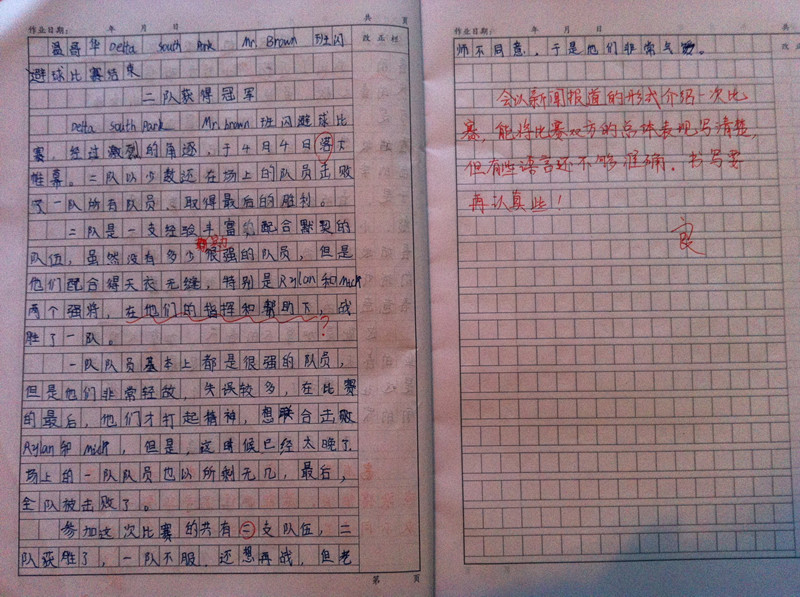 作业日期: 年 月 日 共 页
聂哥华 Delta South Park Mr. Brown 班闪 改正栏
避球比赛结束
二队获得冠军
Delta South Park Mr. brown 班闪避球比
赛，经过激烈的角逐，于4月4日落大
帷幕。二队以少数还在场上的队员击败
了一队所有队员，取得最后的胜利。
二队是一支经验丰富、配合默契的
队伍，虽然没有多少很强的队员，但是
他们配合得天衣无缝，特别是Rylan和mick
两个强将，在他们的指挥和帮助下，战
胜了一队。
?
一队队员基本上都是很强的队员，
但是他们非常轻敌，失误较多，在比赛
的最后，他们才打起精神，想联合击败
Rylan和mick，但是，这时候已经太晚了.
场上的一队队员也以所剩无几，最后，
全队被击败了。
参加这次比赛的共有二支队伍，二
队获胜了，一队不服，还想再战，但老
第 页
作业日期: 年 月 日
师不同意，于是他们非常气。
会以新闻报道的形式介绍一次比
赛，能将比赛双方的总体表现写清楚，
但有些语言还不够准确．书写要
再认真些！
良
第 页